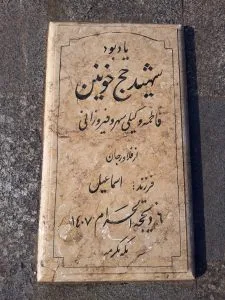 یادبود
شهید حج خونین
فاطمه وکیلی سهروفیروزانی
از فلاورجان
فرزند: اسماعیل
۶ ذیحجة الحرام ۱۴۰۷
مکه مکرمه